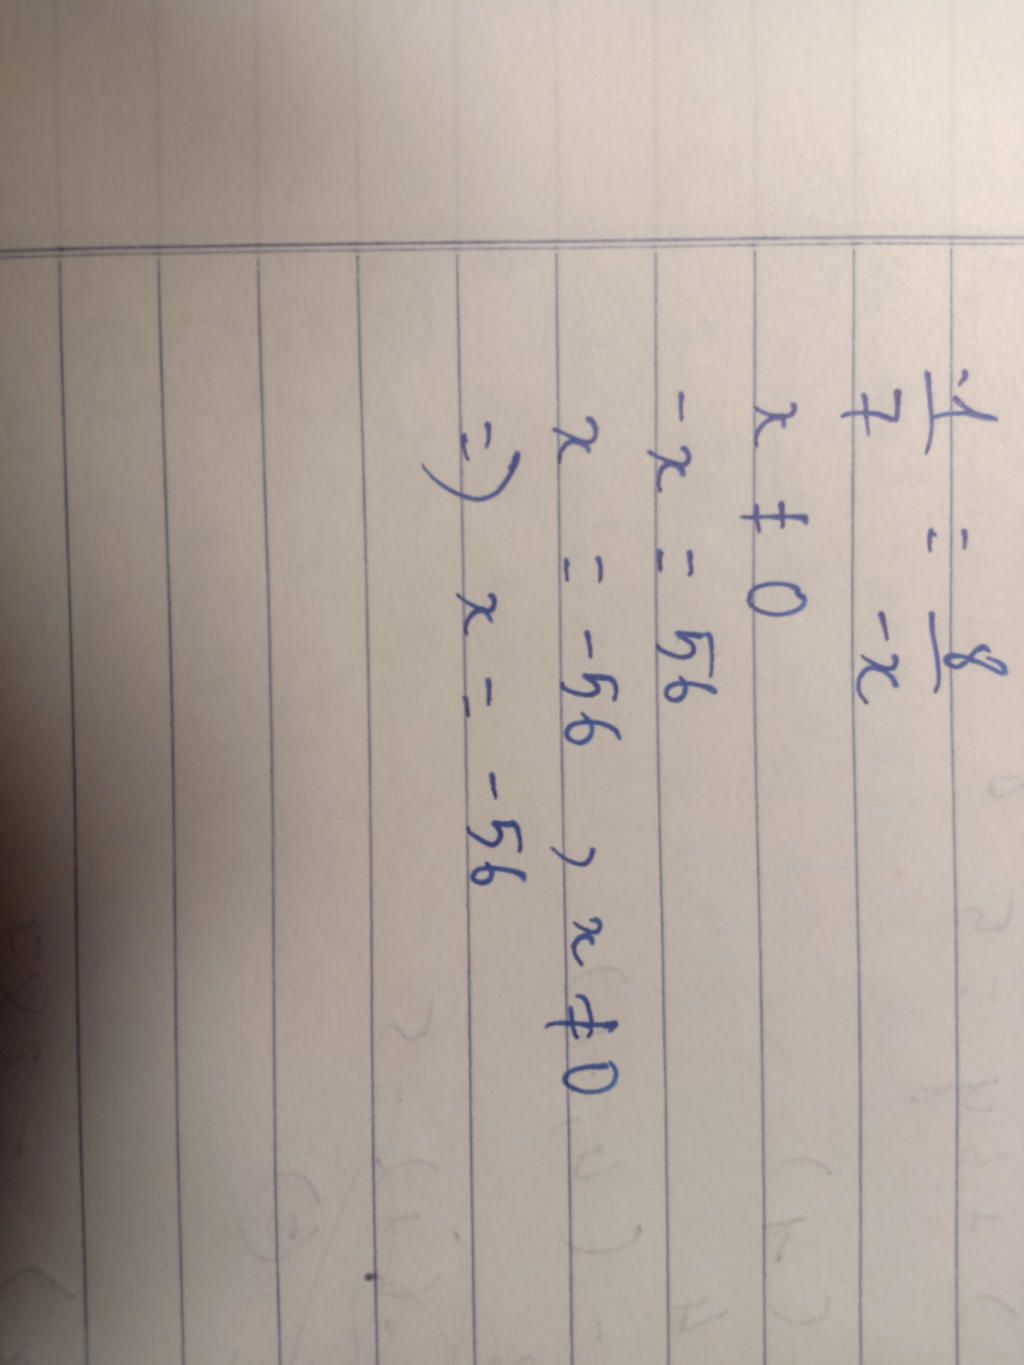 1/7 = 8/-x
x ≠ 0
-x = 56
x = -56 , x ≠ 0
=) x = -56